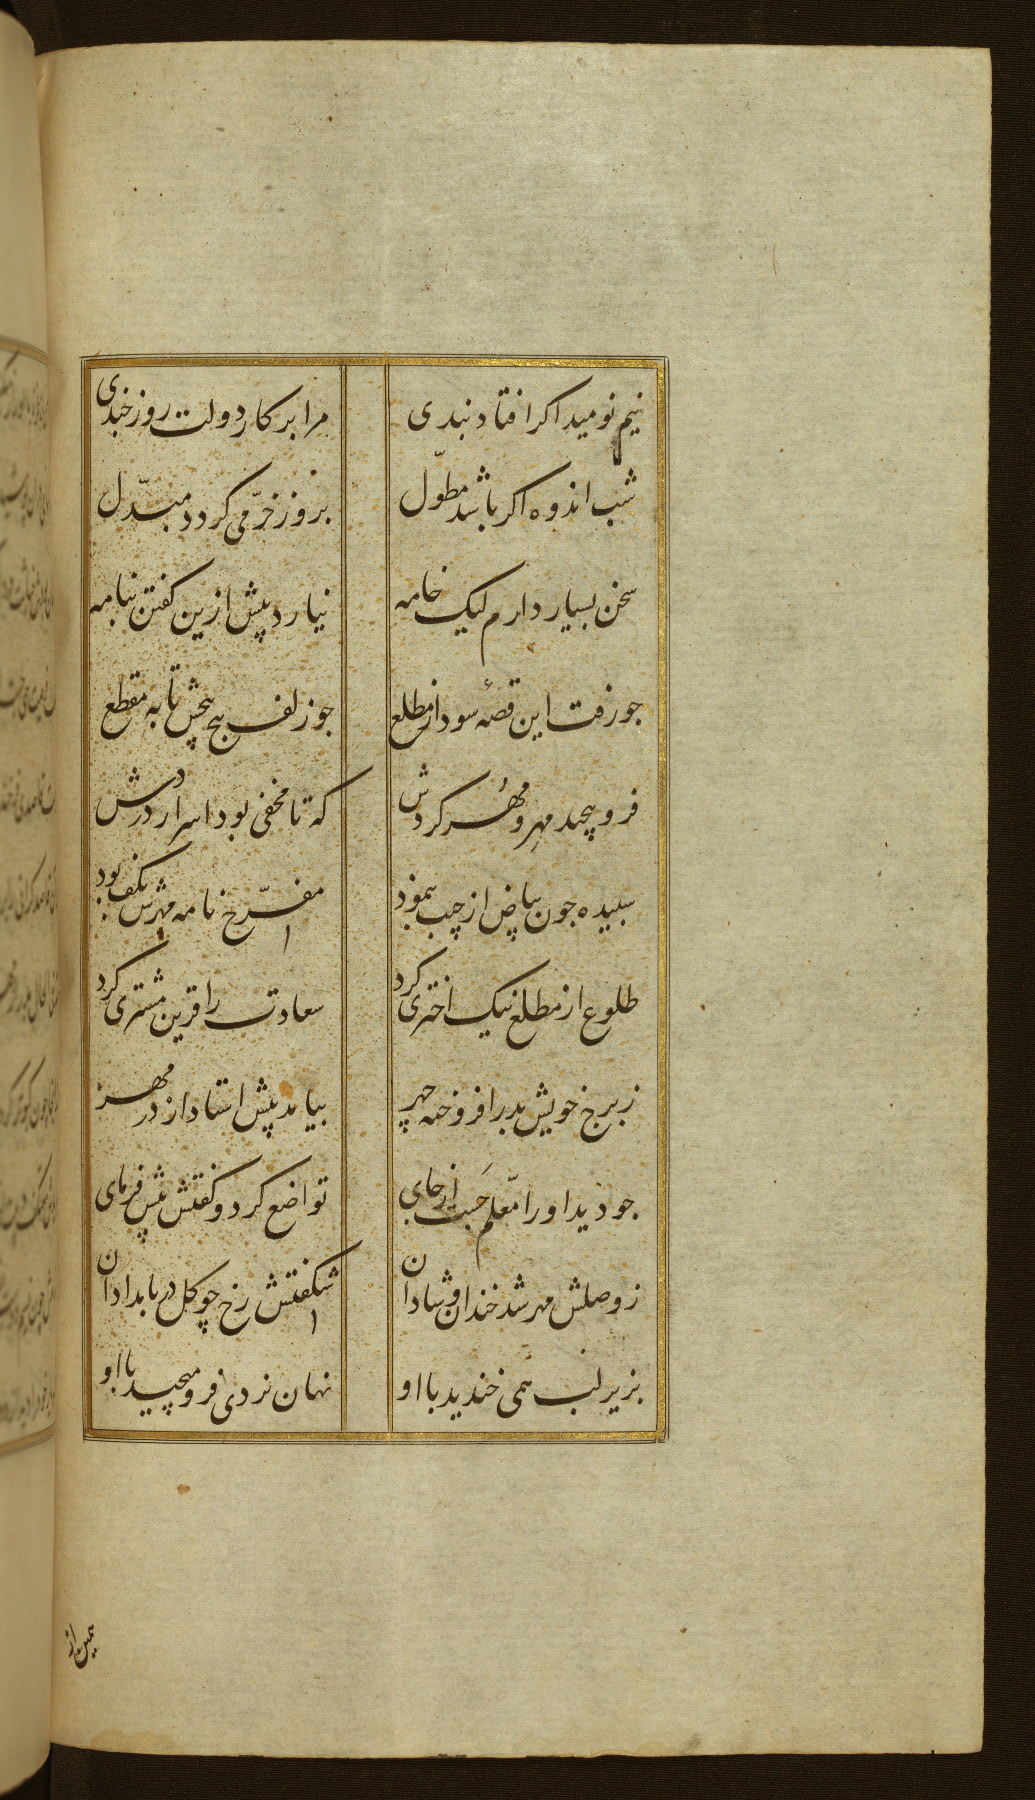 نیم نومید اکر افتاد بندی مرا بر کار دولت روز خندی
شب اندوه اکر باشد مطوّل بروز خرّمی کردد مبدّل
سخن بسیار دارم لیک خامه نیارد پیش ازین کفتن بنامه
جو رفت این قصهٔ سودا ز مطلع جو زلف پیج پیجش تا به مقطع
فرو پیچید مهر و مهر کردش که تا مخفی بود اسرار دردش
سبیده جون بیاض از جیب بنمود مفرّح نامه مهرش بکف بود
طلوع از مطلع نیک اختری کرد سعادت را قرین مشتری کرد
ز برج خویش بدر افروخته چهر بیامد پیش استاد از در مهر
جو دید او را معلّم جَست از جای تواضع کرد و کفتش پیش فرمای
ز وصلش مهر شد خندان و شادان شکفتش رخ چو کل در بامدادان
بزیر لب همی خندید با او نهان نردی فرو میچید با او
همین از